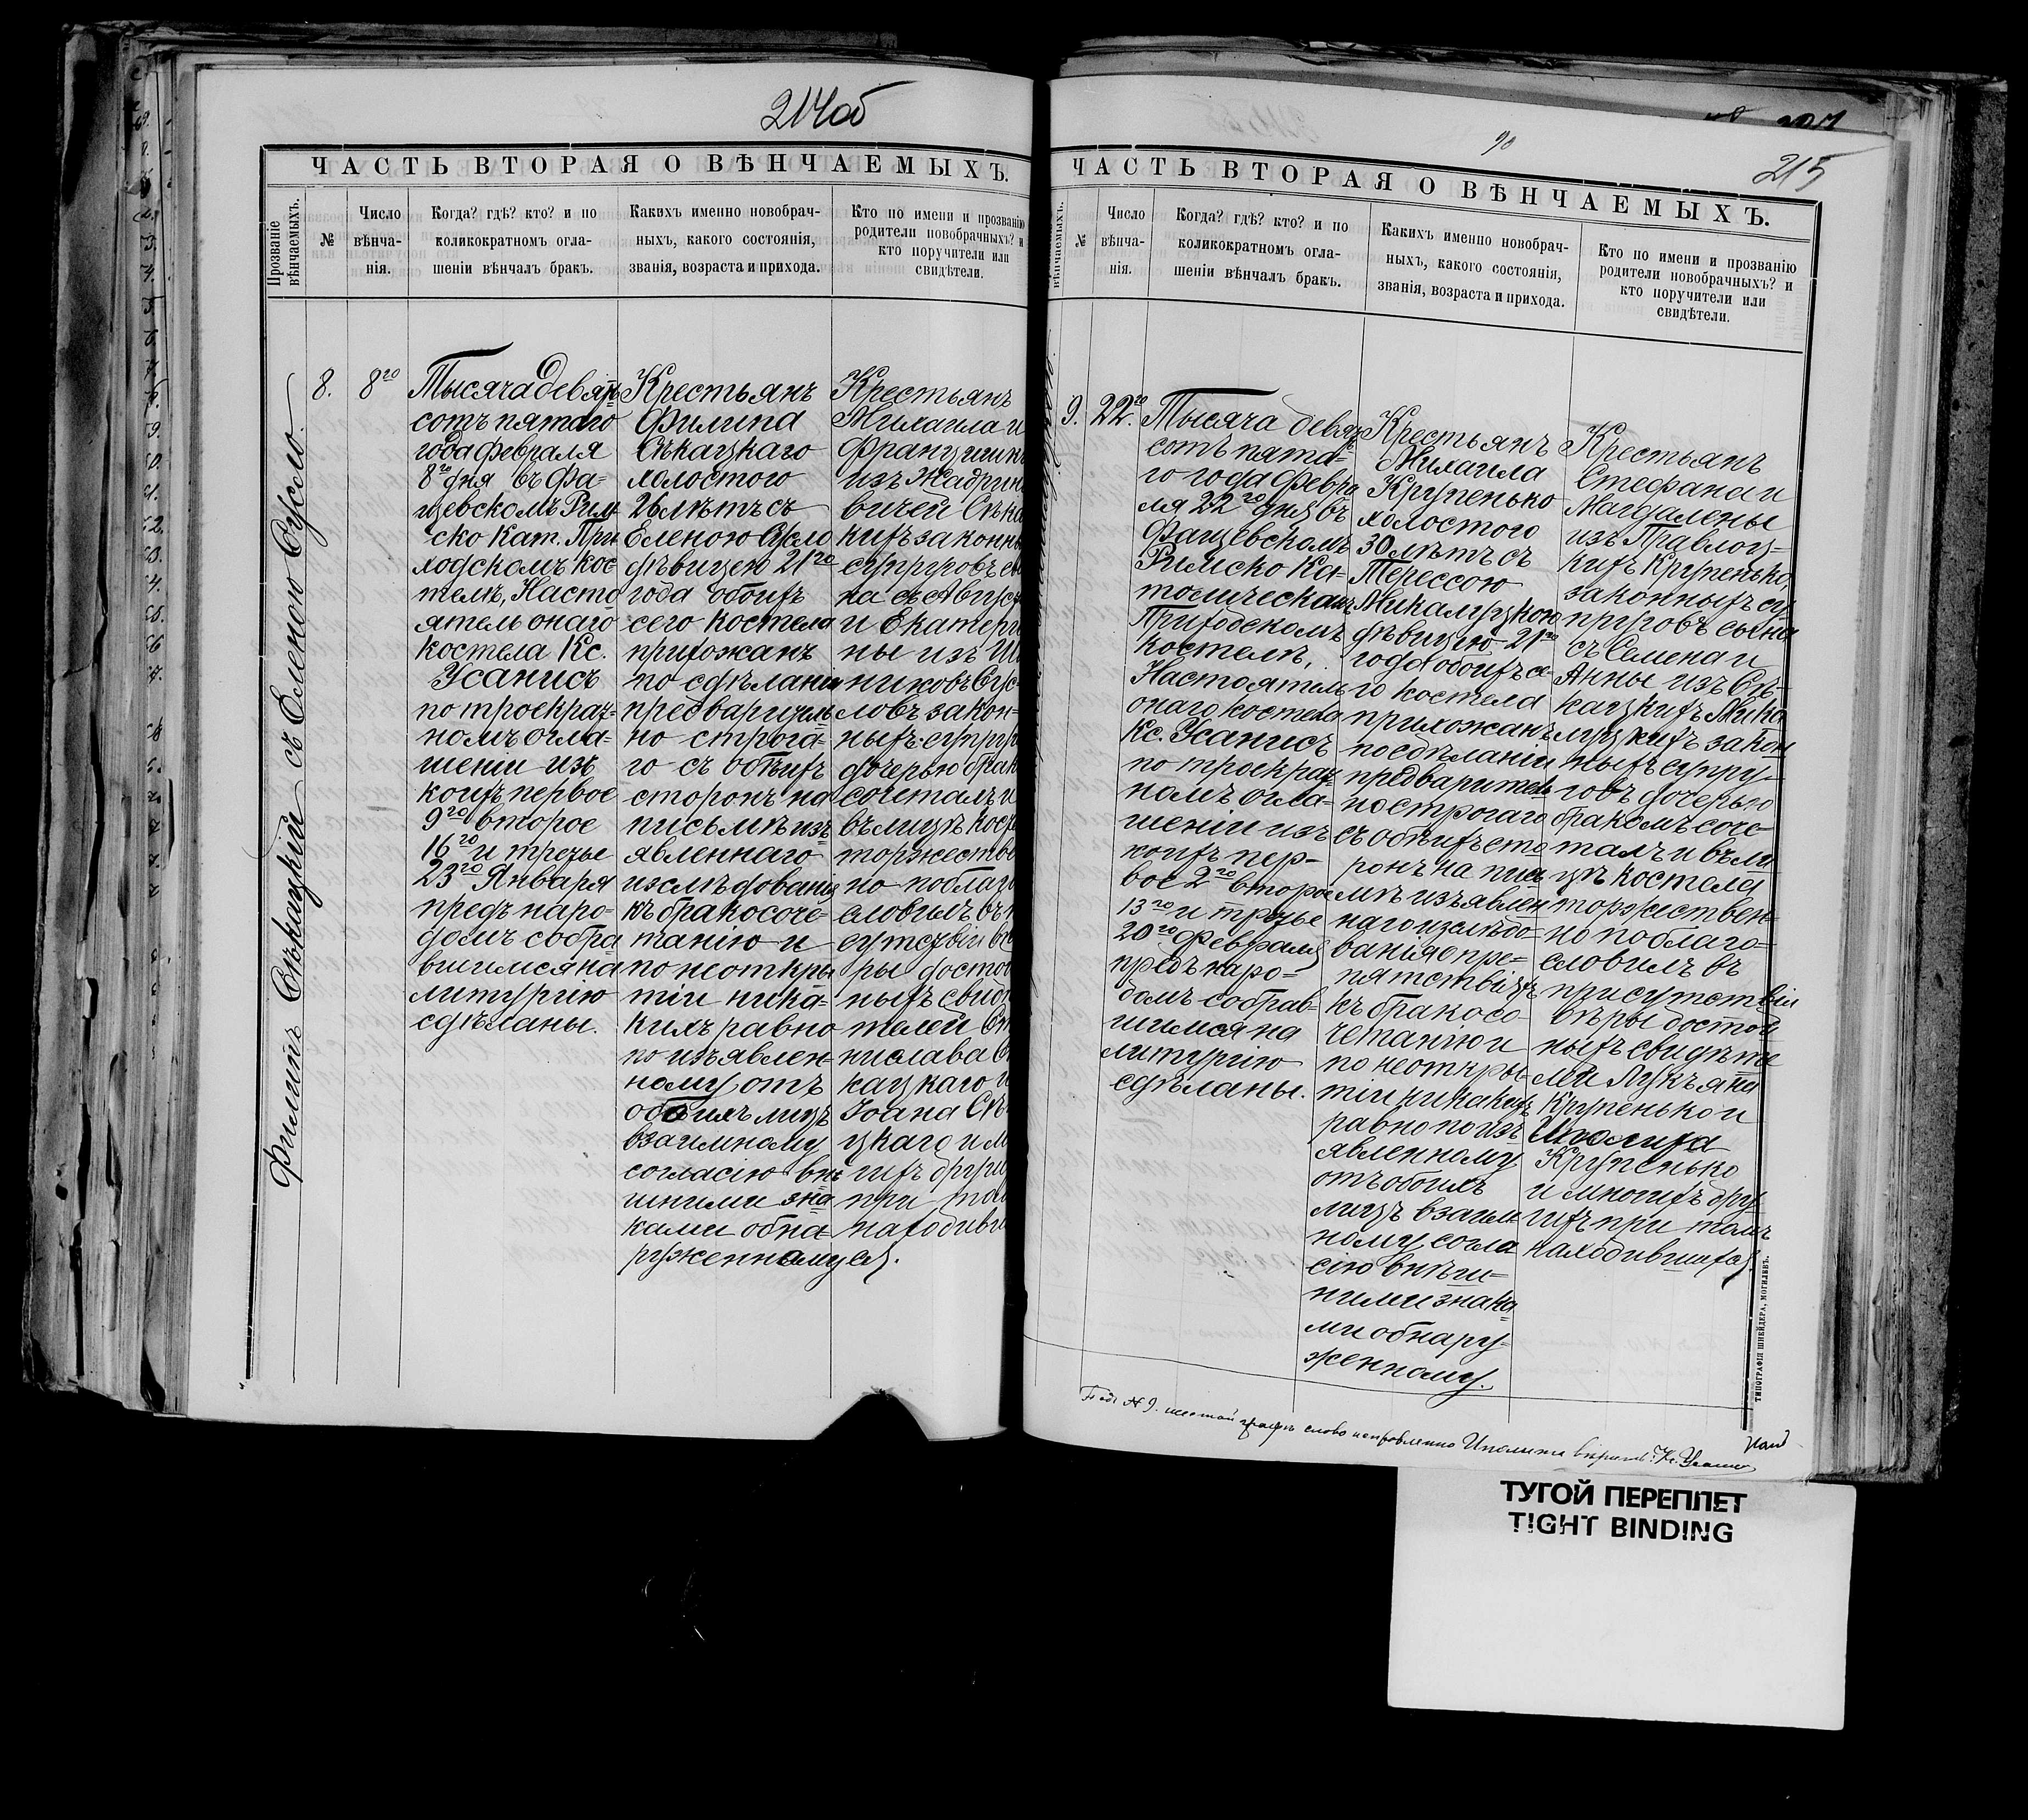 214об
ЧАСТЬ ВТОРАЯ О ВѢНЧАЕМЫХЪ.
Прозваніе вѣнчаемыхъ.
№
Число
вѣнча-
нія.
Когда? гдѣ? кто? и по
коликократномъ огла-
шеніи вѣнчалъ бракъ.
Какихъ именно новобрач-
ныхъ, какого состоянія,
званія, возраста и прихода.
Кто по имени и прозванію
родители новобрачныхъ? и
кто поручители или
свидѣтели.
Филипъ Сѣкацкій съ Еленою Сусло.
8.
8го
Тысяча девят-
сотъ пятаго
года февраля
8го дня въ Фа-
щевскомъ Рим-
ско Кат. При
ходскомъ кос
телѣ, Насто
ятель онаго
костела Кс.
Усанисъ
по троекрат-
номъ огла-
шеніи изъ
коихъ первое
9го второе
16го и третье
23го Января
предъ наро-
домъ собра
вшимся на
литургію
сдѣланы.
Крестьянъ
Филипа
Сѣкацкаго
холостого
26 лѣтъ съ
Еленою Сусло
дѣвицею 21го
года обоихъ
сего костела
прихожанъ
по сдѣланіи
предварительно
строга-
го съ обѣихъ
сторонъ на
письмѣ изъ
явленнаго
изслѣдованія
къ бракосоче-
танію и
по неоткры
тіи ника-
кихъ равно
по изъявлен-
ному отъ
обоихъ лицъ
взаимному
согласію внѣ
шними зна
ками обна-
руженному
Крестьянъ
Михаила и
Францишк
изъ Жадрин
вичей Сѣка
кихъ законн
супруговъ сы
на съ Август
и Екатери
ны изъ
никовъ Сус-
ловъ закон-
ныхъ супру
дочерью брак
сочеталъ и
въ лицѣ кост
торжестве
но поблаго
словилъ въ
сутствіи вѣ
ры достой
ныхъ свидѣ
телей Ста
нислава Сѣ
кацкаго и
Іоана Сѣк
цкаго и мн
гихъ други
при том
находивш
ся.
90
215
ЧАСТЬ ВТОРАЯ О ВѢНЧАЕМЫХЪ.
вѣнчаемыхъ.
№
Число
вѣнча-
нія.
Когда? гдѣ? кто? и по
коликократномъ огла-
шеніи вѣнчалъ бракъ.
Какихъ именно новобрач-
ныхъ, какого состоянія,
званія, возраста и прихода.
Кто по имени и прозванію
родители новобрачныхъ? и
кто поручители или
свидѣтели.
9.
22го
Тысяча девят
сотъ пята-
го года Февра
ля 22го дня въ
Фащевскомъ
Римско Ка-
толическомъ
Приходскомъ
костелѣ,
Настоятель
онаго костела
Кс. Усанисъ
по троекрат
номъ огла-
шеніи изъ
коихъ пер-
вое 2го второе
13го и третье
20го Февраля
предъ наро-
домъ собрав-
шимся на
литургію
сдѣланы.
Крестьянъ
Михаила
Крупенько
холостого
30 лѣтъ съ
Терессою
Микалуцкою
дѣвицею 21го
года обоихъ се-
го костела
прихожанъ
по сдѣланіи
предваритель
но строгаго
съ обѣихъ сто
ронъ на пись
мѣ изъявлен
наго изслѣдо-
ванія о пре-
пятствіяхъ
къ бракосо
четанію и
по неоткры-
тіи никакихъ
равно по изъ
явленному
отъ обоихъ
лицъ взаим
ному согла
сію внѣш-
ними знака
ми обнару-
женному.
Крестьянъ
Стефана и
Магдалены
изъ Правлоц-
кихъ Крупенько,
законныхъ су
пруговъ сына
съ Семена и
Анны изъ Сѣ-
кацкихъ Мика
луцкихъ закон
ныхъ супру-
говъ дочерью
бракомъ соче-
талъ и въ ли
цѣ костела
торжествен-
но поблаго-
словилъ въ
присутствіи
вѣры достой
ныхъ свидѣте
лей Лукъяна
Крупенько и
Иполита
Крупенько
и многихъ дру
гихъ при томъ
находившихся.
ТИПОГРАФІЯ ШНЕЙДЕРА, МОГИЛЕВЪ.
Подъ № 9. шестой графѣ слово исправленно Иполита вѣрить. Кс. Усанис
ТУГОЙ ПЕРЕПЛЕТ
TIGHT BINDING